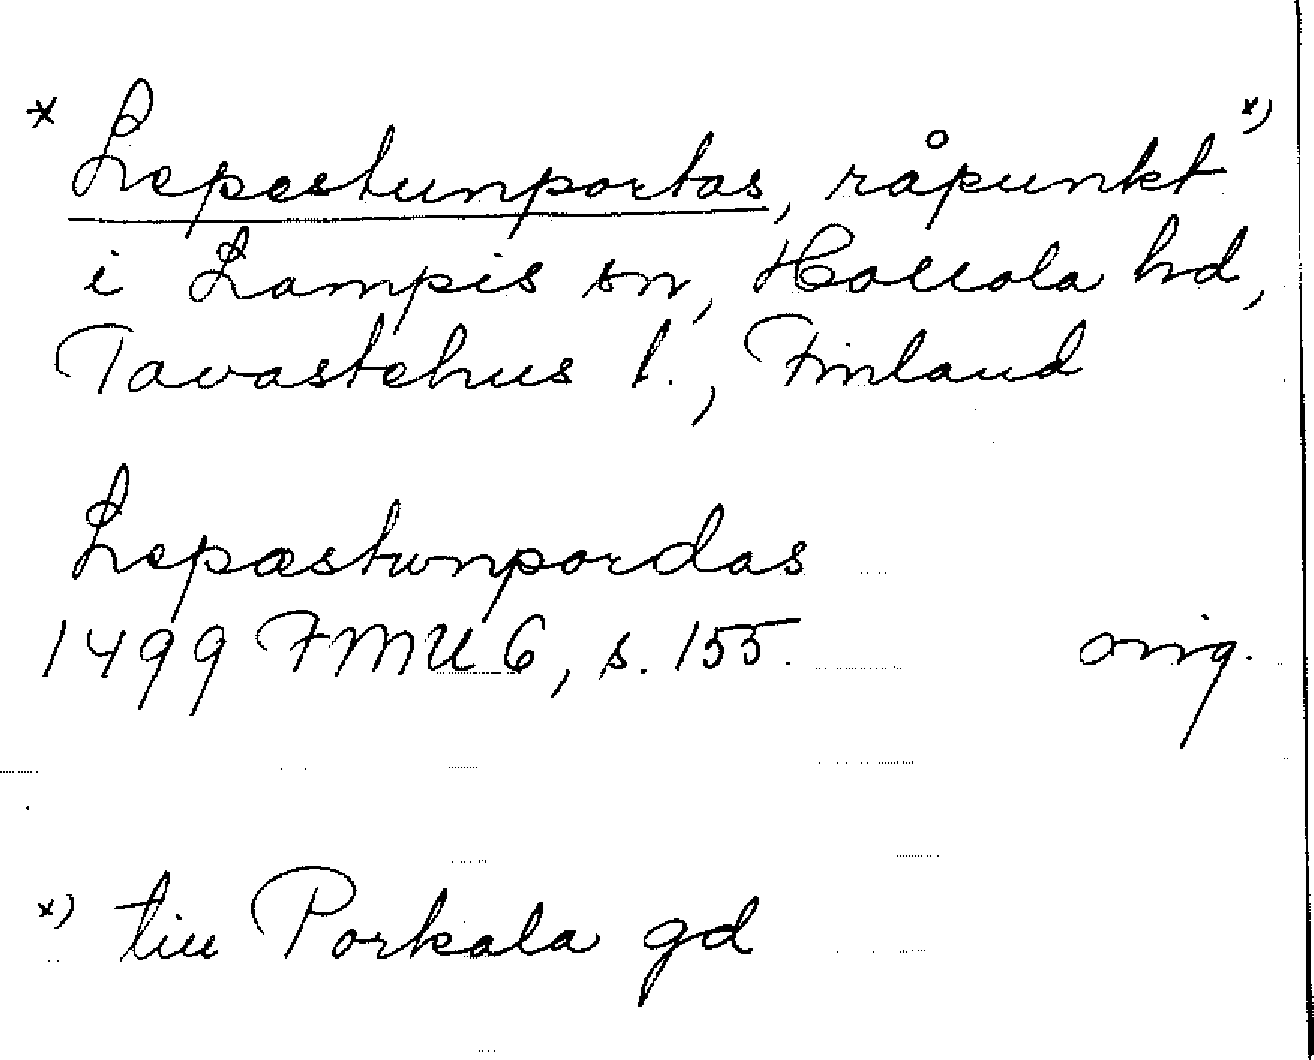 * Lepestunportas, råpunkt x)
i Lampis sn, Hollola hd,
Tavastehus l., Finland
Lepæstwnpordas
1499 FMU 6, s. 155.   orig.
x) till Porkala gd